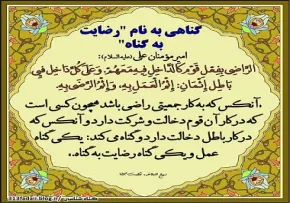 گناهی به نام "رضایت
به گناه"
امیرمؤمنان علی (علیه‌السلام):
الرَّاضِي بِفِعْلِ قَوْمٍ كَالدَّاخِلِ فِيهِ مَعَهُمْ وَعَلَى كُلِّ دَاخِلٍ فِي
بَاطِلٍ إِثْمَانِ: إِثْمُ الْعَمَلِ بِهِ وَإِثْمُ الرِّضَى بِهِ.
آنکس که به کار جمعیتی راضی باشد همچون کسی است
که در کار آن قوم دخالت و شرکت دارد و آنکس که
در کار باطل دخالت دارد دو گناه می‌کند: یکی گناه
عمل و یکی گناه رضایت به گناه.
نهج البلاغه، حکمت